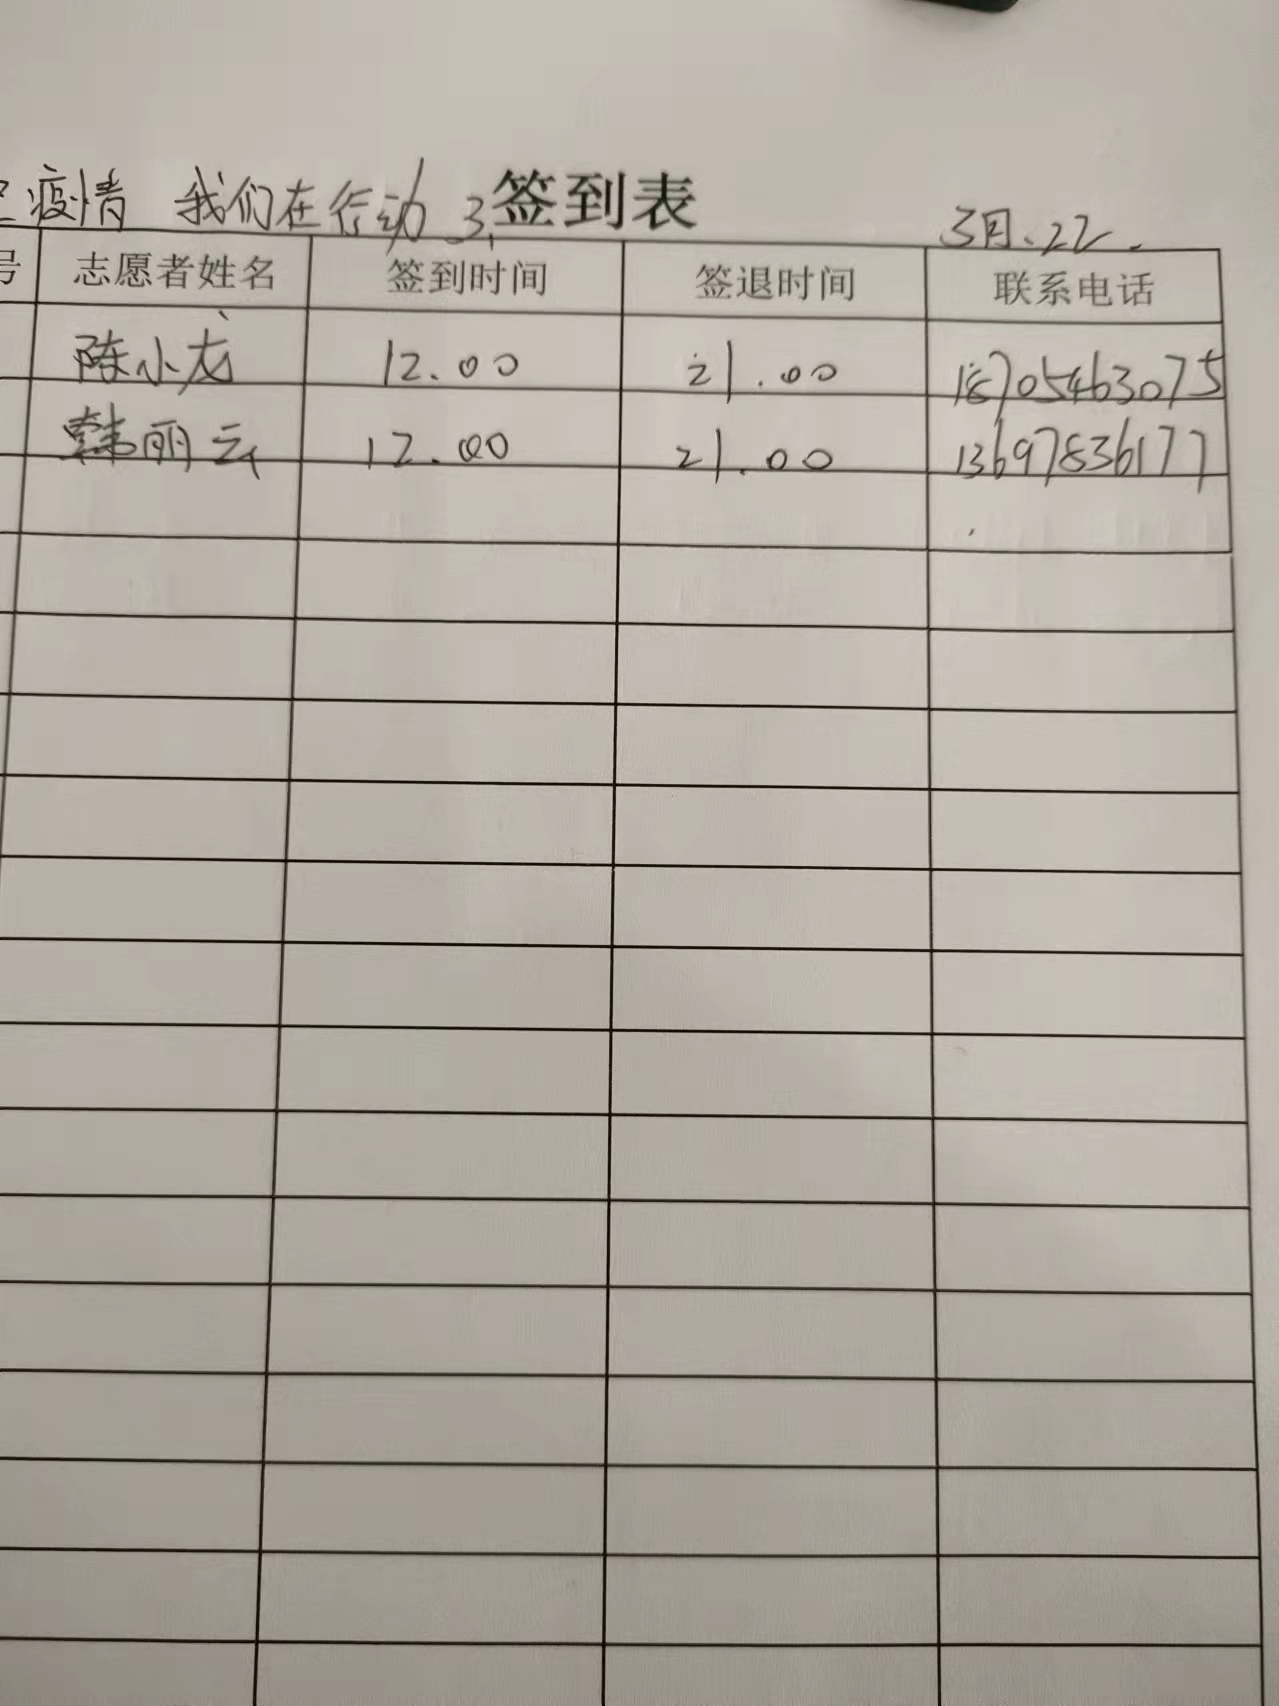 疫情 我们在行动 3. 签到表
3月.22.
号 志愿者姓名 签到时间 签退时间 联系电话
陈小龙 12.00 21.00 18705463075
韩丽云 12.00 21.00 13697836177